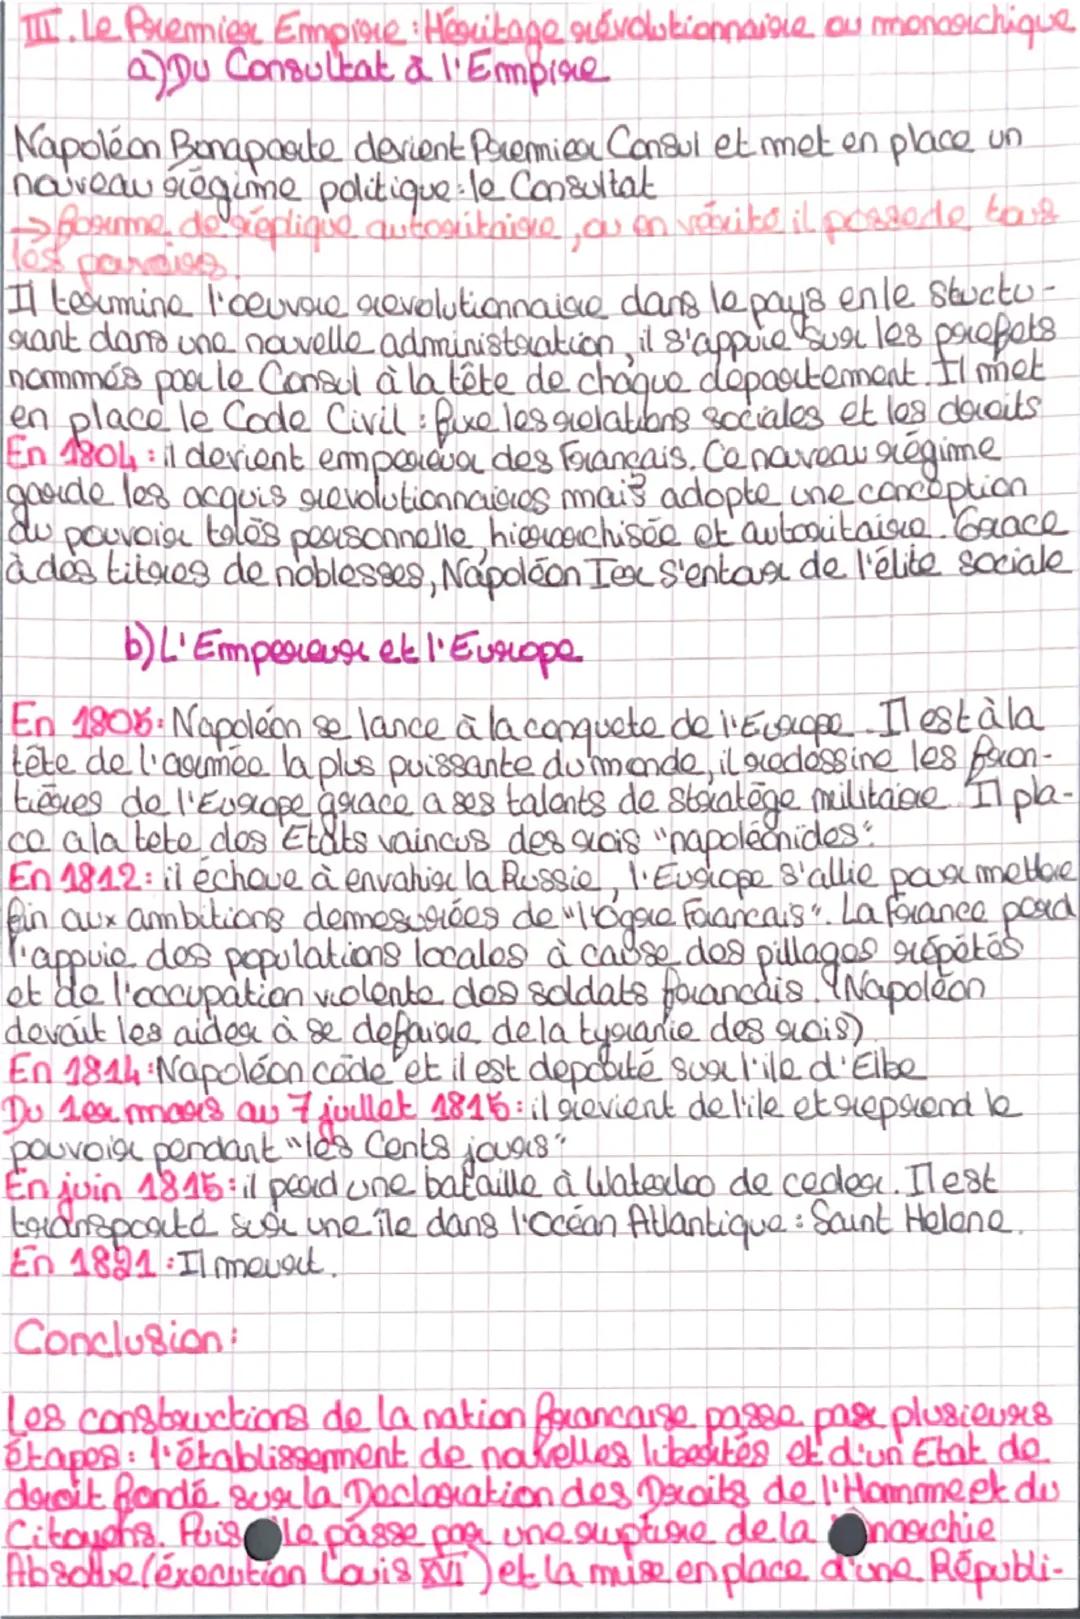 III. Le Premier Empire : Héritage révolutionnaire ou monarchique
a) Du Consultat à l'Empire
Napoléon Bonaparte devient Premier Consul et met en place un
nouveau régime politique : le Consultat
→ forme de réplique autoritaire, ou en vérité il possede tous
les pouvoirs.
Il termine l'oeuvre revolutionnaire dans le pays en le stuctu-
rant dans une nouvelle administration, il s'appuie sur les prefets
nommés par le Consul à la tête de chaque departement. Il met
en place le Code Civil : fixe les relations sociales et les droits
En 1804 : il devient empereur des Francais. Ce nouveau régime
garde les acquis revolutionnaires mais adopte une conception
du pouvoir tolès personnelle, hierarchisée et autoritaire. Grace
à des titres de noblesses, Napoléon Ier s'entour de l'élite sociale
b) L'Empereur et l'Europe
En 1805 : Napoléon se lance à la conquete de l'Europe. Il est à la
tête de l'armée la plus puissante du monde, il redessine les fron-
tières de l'Europe grace a ses talents de stratège militaire. Il pla-
ce a la tete des Etats vaincus des rois "napoléonides".
En 1812 : il échoue à envahir la Russie, l'Europe s'allie pour mettre
fin aux ambitions demesurées de "l'Ogre Francais". La France perd
l'appuie des populations locales à cause des pillages répétés
et de l'occupation violente des soldats francais. (Napoléon
devait les aider à se defaire de la tyranie des rois)
En 1814 : Napoléon cède et il est deporté sur l'ile d'Elbe
Du 1er mars au 7 juillet 1815 : il revient de l'ile et reprend le
pouvoir pendant "les Cents jours"
En juin 1815 : il perd une bataille à Waterloo de ceder. Il est
transporté sur une île dans l'océan Atlantique : Saint Helene.
En 1821 : Il meurt.
Conclusion :
Les constructions de la nation francaise passe par plusieurs
étapes : l'établissement de nouvelles libertés et d'un Etat de
droit fondé sur la Declaration des Droits de l'Homme et du
Citoyens. Puis le passe par une rupture de la narchie
Absolue (éxecution Louis XVI) et la mise en place d'une Républi-